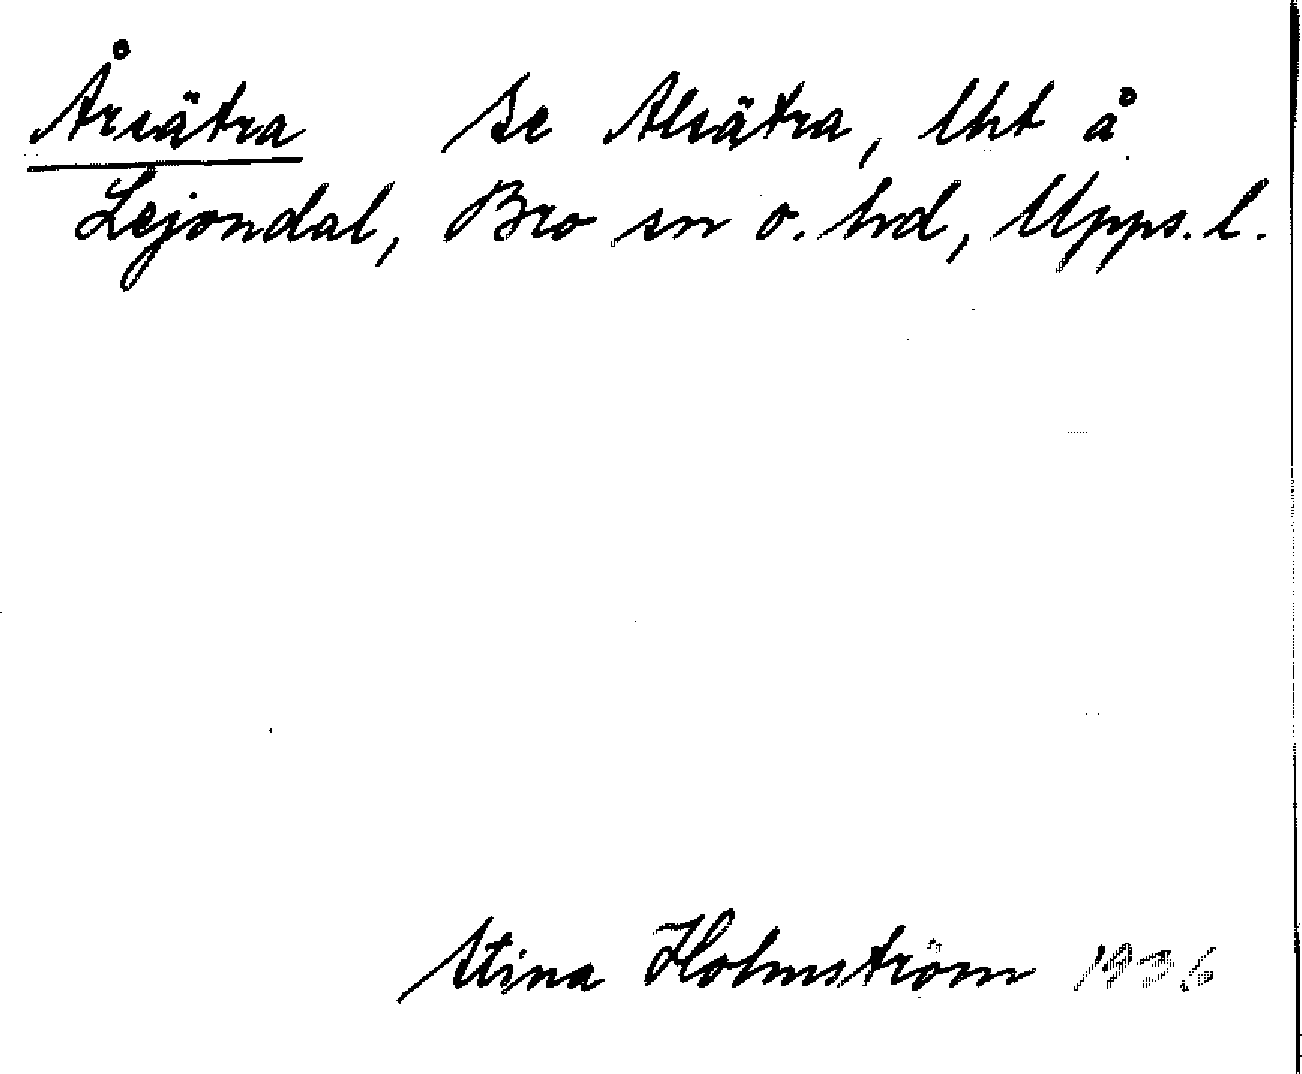 Årsätra Se Alsätra, lht å
Lejondal, Bro sn o. hd, Upps. l.
Stina Holmström 1936